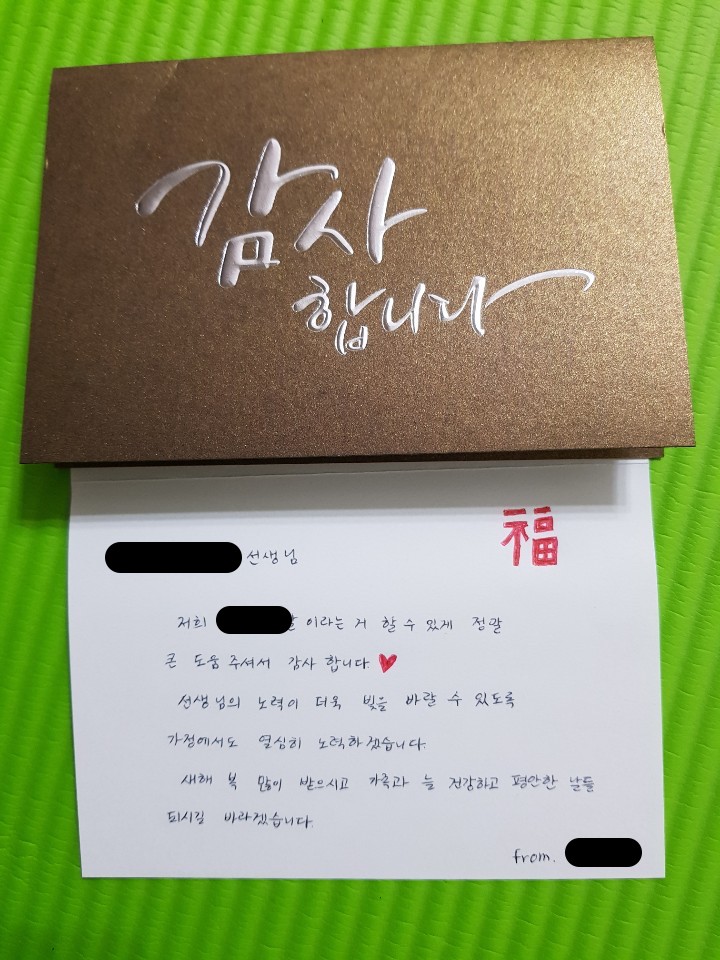 감사
합니다
福
선생님
저희 이라는 거 할 수 있게 정말
큰 도움 주셔서 감사 합니다.
선생님의 노력이 더욱 빛을 바랄 수 있도록
가정에서도 열심히 노력하겠습니다.
새해 복 많이 받으시고 가족과 늘 건강하고 평안한 날들
되시길 바라겠습니다.
from.